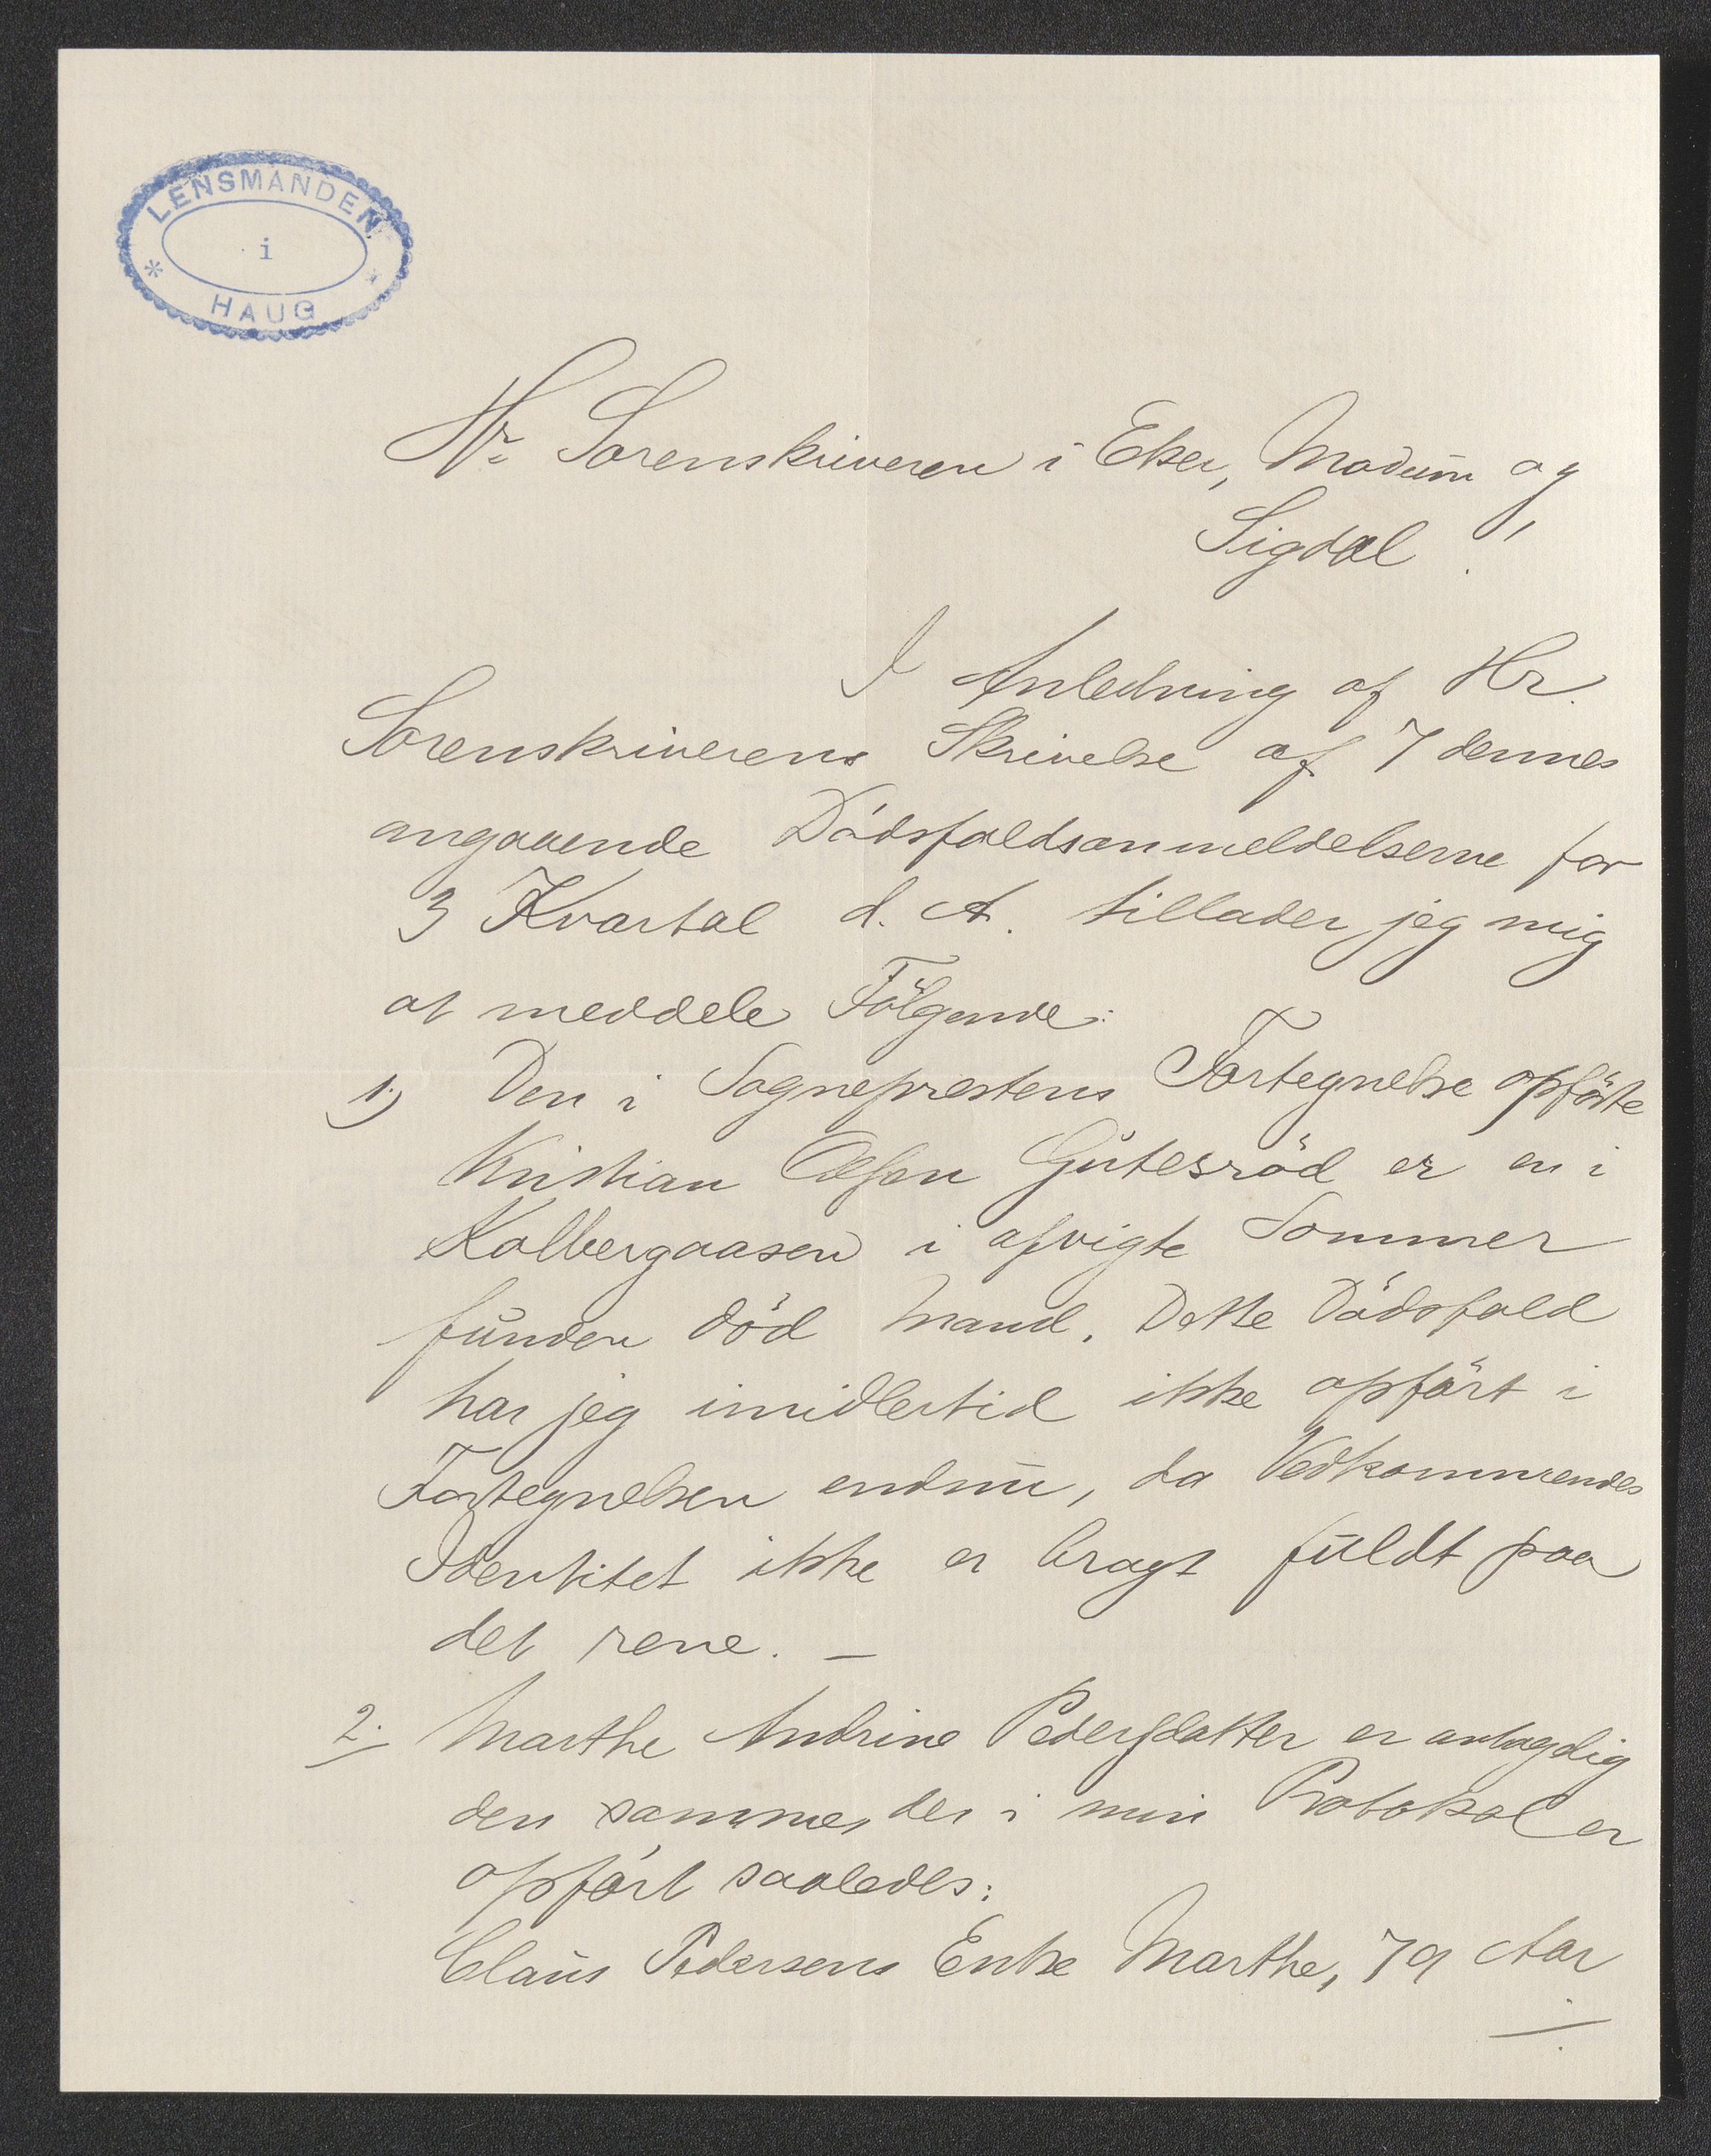 LENSMANDEN
i
HAUG
Hr. Sorenskriveren i Eker, Modum og
Sigdal!
I Anledning af Hr.
Sorenskriverens Skrivelse af 7 dennes
angaaende Dödsfaldsanmeldelserne for
3 Kvartal d. A. tillader jeg mig
at meddele Fölgende:
1.) Den i Sogneprestens Fortegnelse opförte
Kristian Olsen Gutesröd er en i
Kolbergaasen i afvigte Sommer
funden död Mand. Dette Dödsfald
har jeg imidlertid ikke opfört i
Fortegnelsen endnu, da Vedkommendes
Identitet ikke er bragt fuldt paa
det rene. —
2. Marthe Andrine Pedersdatter er antagelig
den samme, der i min Protokol er
opfört saaledes:
Claus Pedersens Enke Marthe, 79 Aar